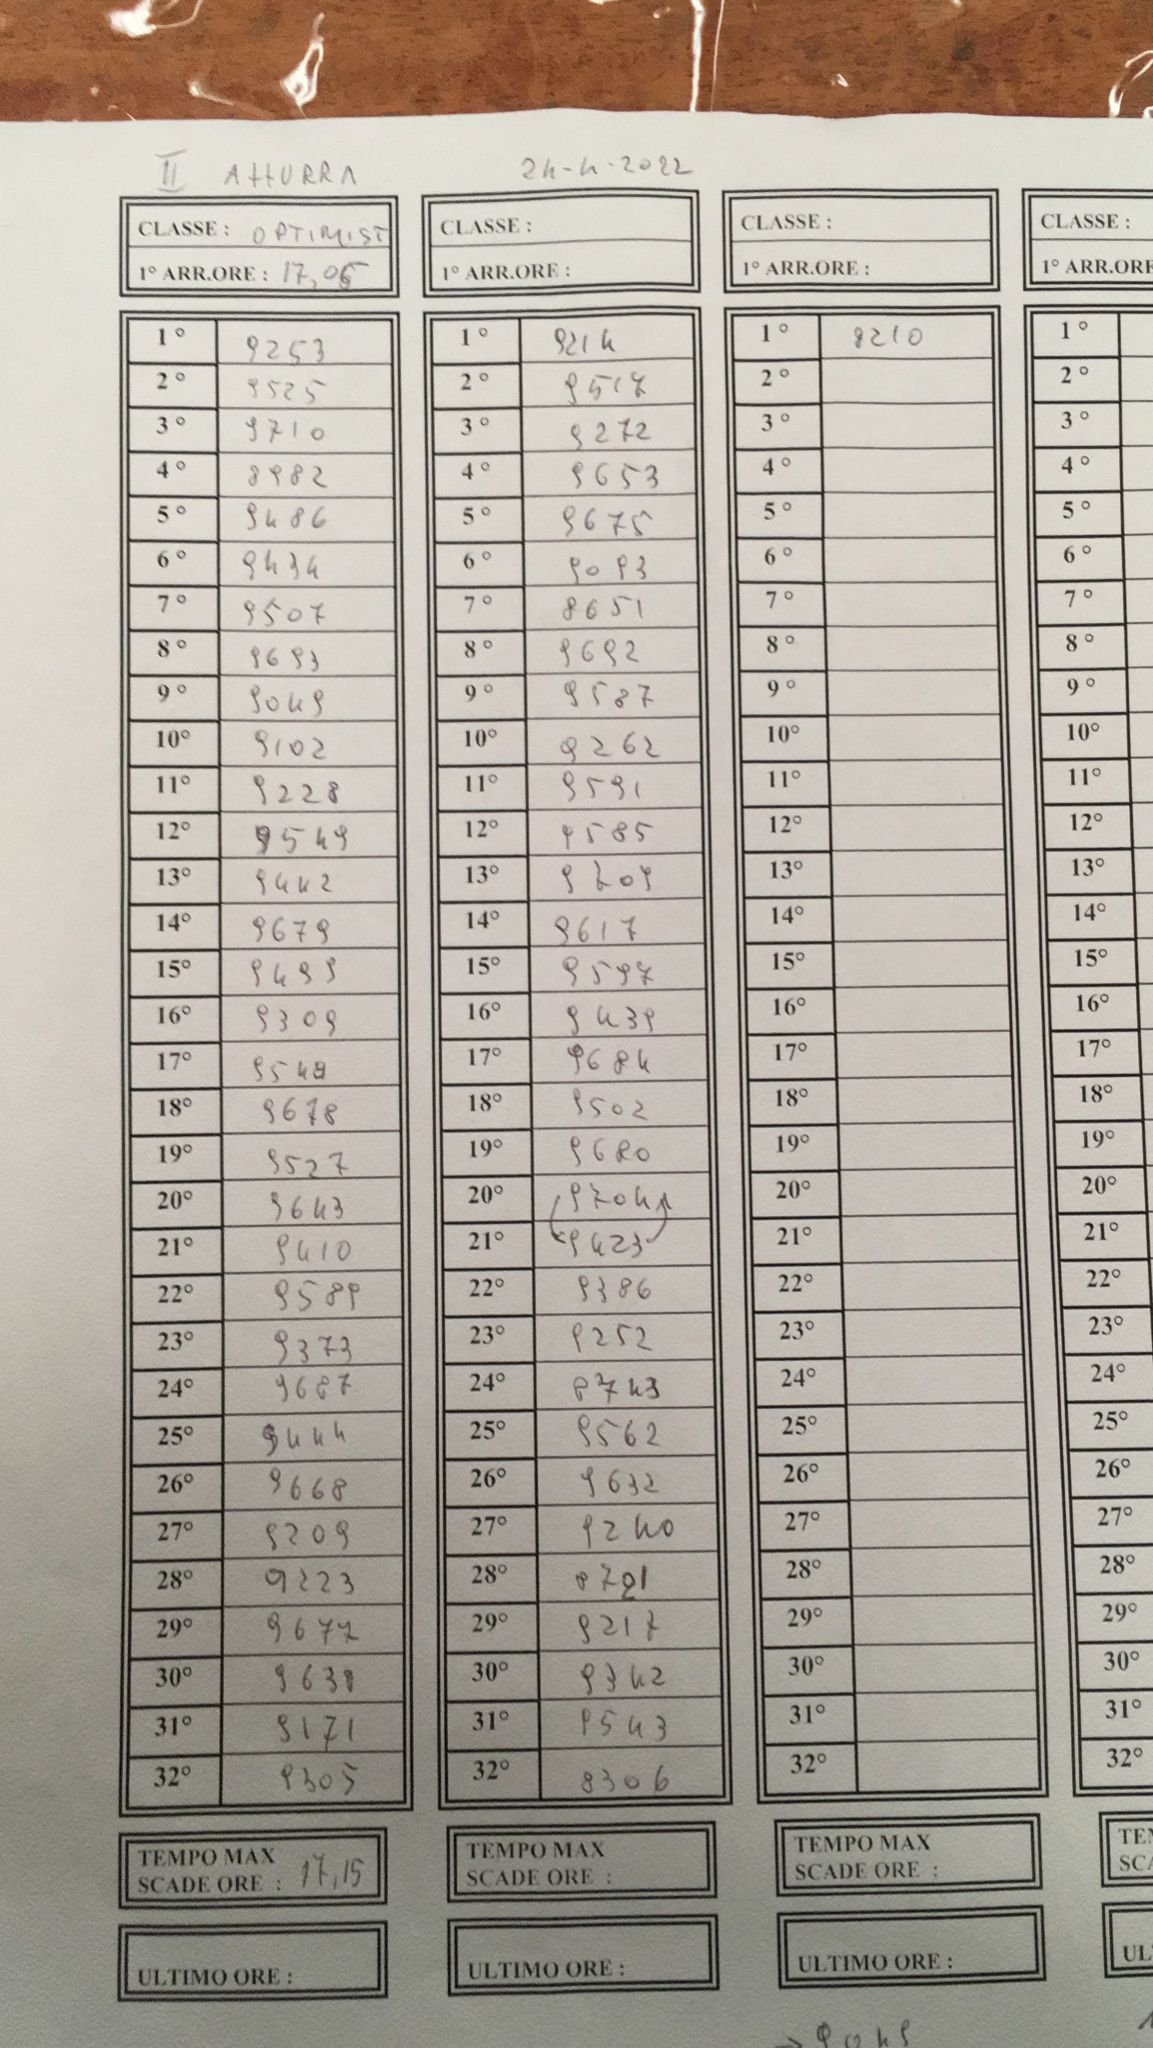 II AHURRA 24-4-2022
CLASSE : OPTIMIST
1° ARR.ORE : 17,06
1° 9253
2° 9525
3° 9710
4° 8982
5° 9486
6° 9434
7° 9507
8° 9693
9° 9049
10° 9102
11° 9228
12° 9549
13° 9442
14° 9679
15° 9499
16° 9309
17° 9548
18° 9678
19° 9527
20° 9643
21° 9410
22° 9589
23° 9373
24° 9687
25° 9444
26° 9668
27° 9209
28° 9223
29° 9677
30° 9638
31° 9171
32° 9305
TEMPO MAX
SCADE ORE : 17,15
ULTIMO ORE :
CLASSE :
1° ARR.ORE :
1° 9214
2° 9517
3° 9272
4° 9653
5° 9675
6° 9093
7° 8651
8° 9692
9° 9587
10° 9262
11° 9591
12° 9585
13° 9709
14° 9617
15° 9597
16° 9439
17° 9684
18° 9502
19° 9680
20° 9704
21° 9423
22° 9386
23° 9252
24° 8743
25° 9562
26° 9632
27° 9240
28° 8721
29° 9217
30° 9342
31° 9543
32° 8306
TEMPO MAX
SCADE ORE :
ULTIMO ORE :
CLASSE :
1° ARR.ORE :
1° 8210
2°
3°
4°
5°
6°
7°
8°
9°
10°
11°
12°
13°
14°
15°
16°
17°
18°
19°
20°
21°
22°
23°
24°
25°
26°
27°
28°
29°
30°
31°
32°
TEMPO MAX
SCADE ORE :
ULTIMO ORE :
→ 9049
CLASSE :
1° ARR.ORE
1°
2°
3°
4°
5°
6°
7°
8°
9°
10°
11°
12°
13°
14°
15°
16°
17°
18°
19°
20°
21°
22°
23°
24°
25°
26°
27°
28°
29°
30°
31°
32°